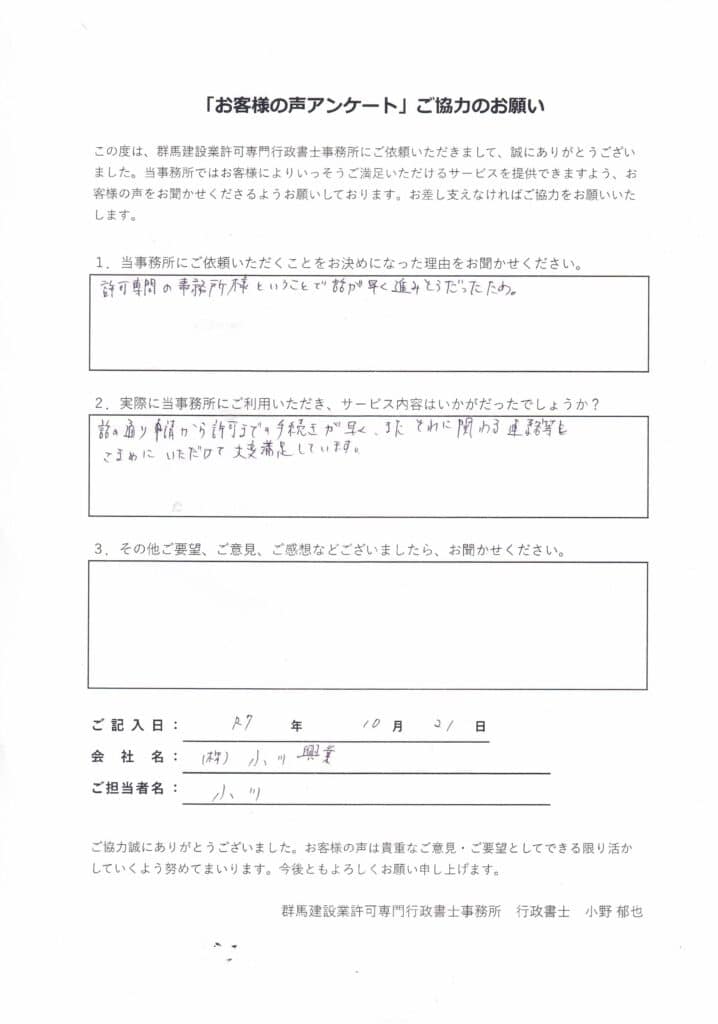 「お客様の声アンケート」ご協力のお願い
この度は、群馬建設業許可専門行政書士事務所にご依頼いただきまして、誠にありがとうござい
ました。当事務所ではお客様によりいっそうご満足いただけるサービスを提供できますよう、お
客様の声をお聞かせくださるようお願いしております。お差し支えなければご協力をお願いいた
します。
１．当事務所にご依頼いただくことをお決めになった理由をお聞かせください。
許可専門の事務所様ということで話が早く進みそうだったため。
２．実際に当事務所にご利用いただき、サービス内容はいかがだったでしょうか？
話の通り申請から許可までの手続きが早く、また それに関わる連絡等も
こまめに いただけて大変満足しています。
３．その他ご要望、ご意見、ご感想などございましたら、お聞かせください。
ご記入日： R7 年 10 月 21 日
会社名： (株) 小川興業
ご担当者名： 小川
ご協力誠にありがとうございました。お客様の声は貴重なご意見・ご要望としてできる限り活か
していくよう努めてまいります。今後ともよろしくお願い申し上げます。
群馬建設業許可専門行政書士事務所　行政書士　小野 郁也